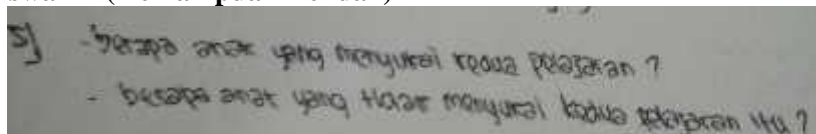 5] - berapa anak yang menyukai kedua pelajaran ?
- berapa anak yang tidak menyukai kedua pelajaran itu ?